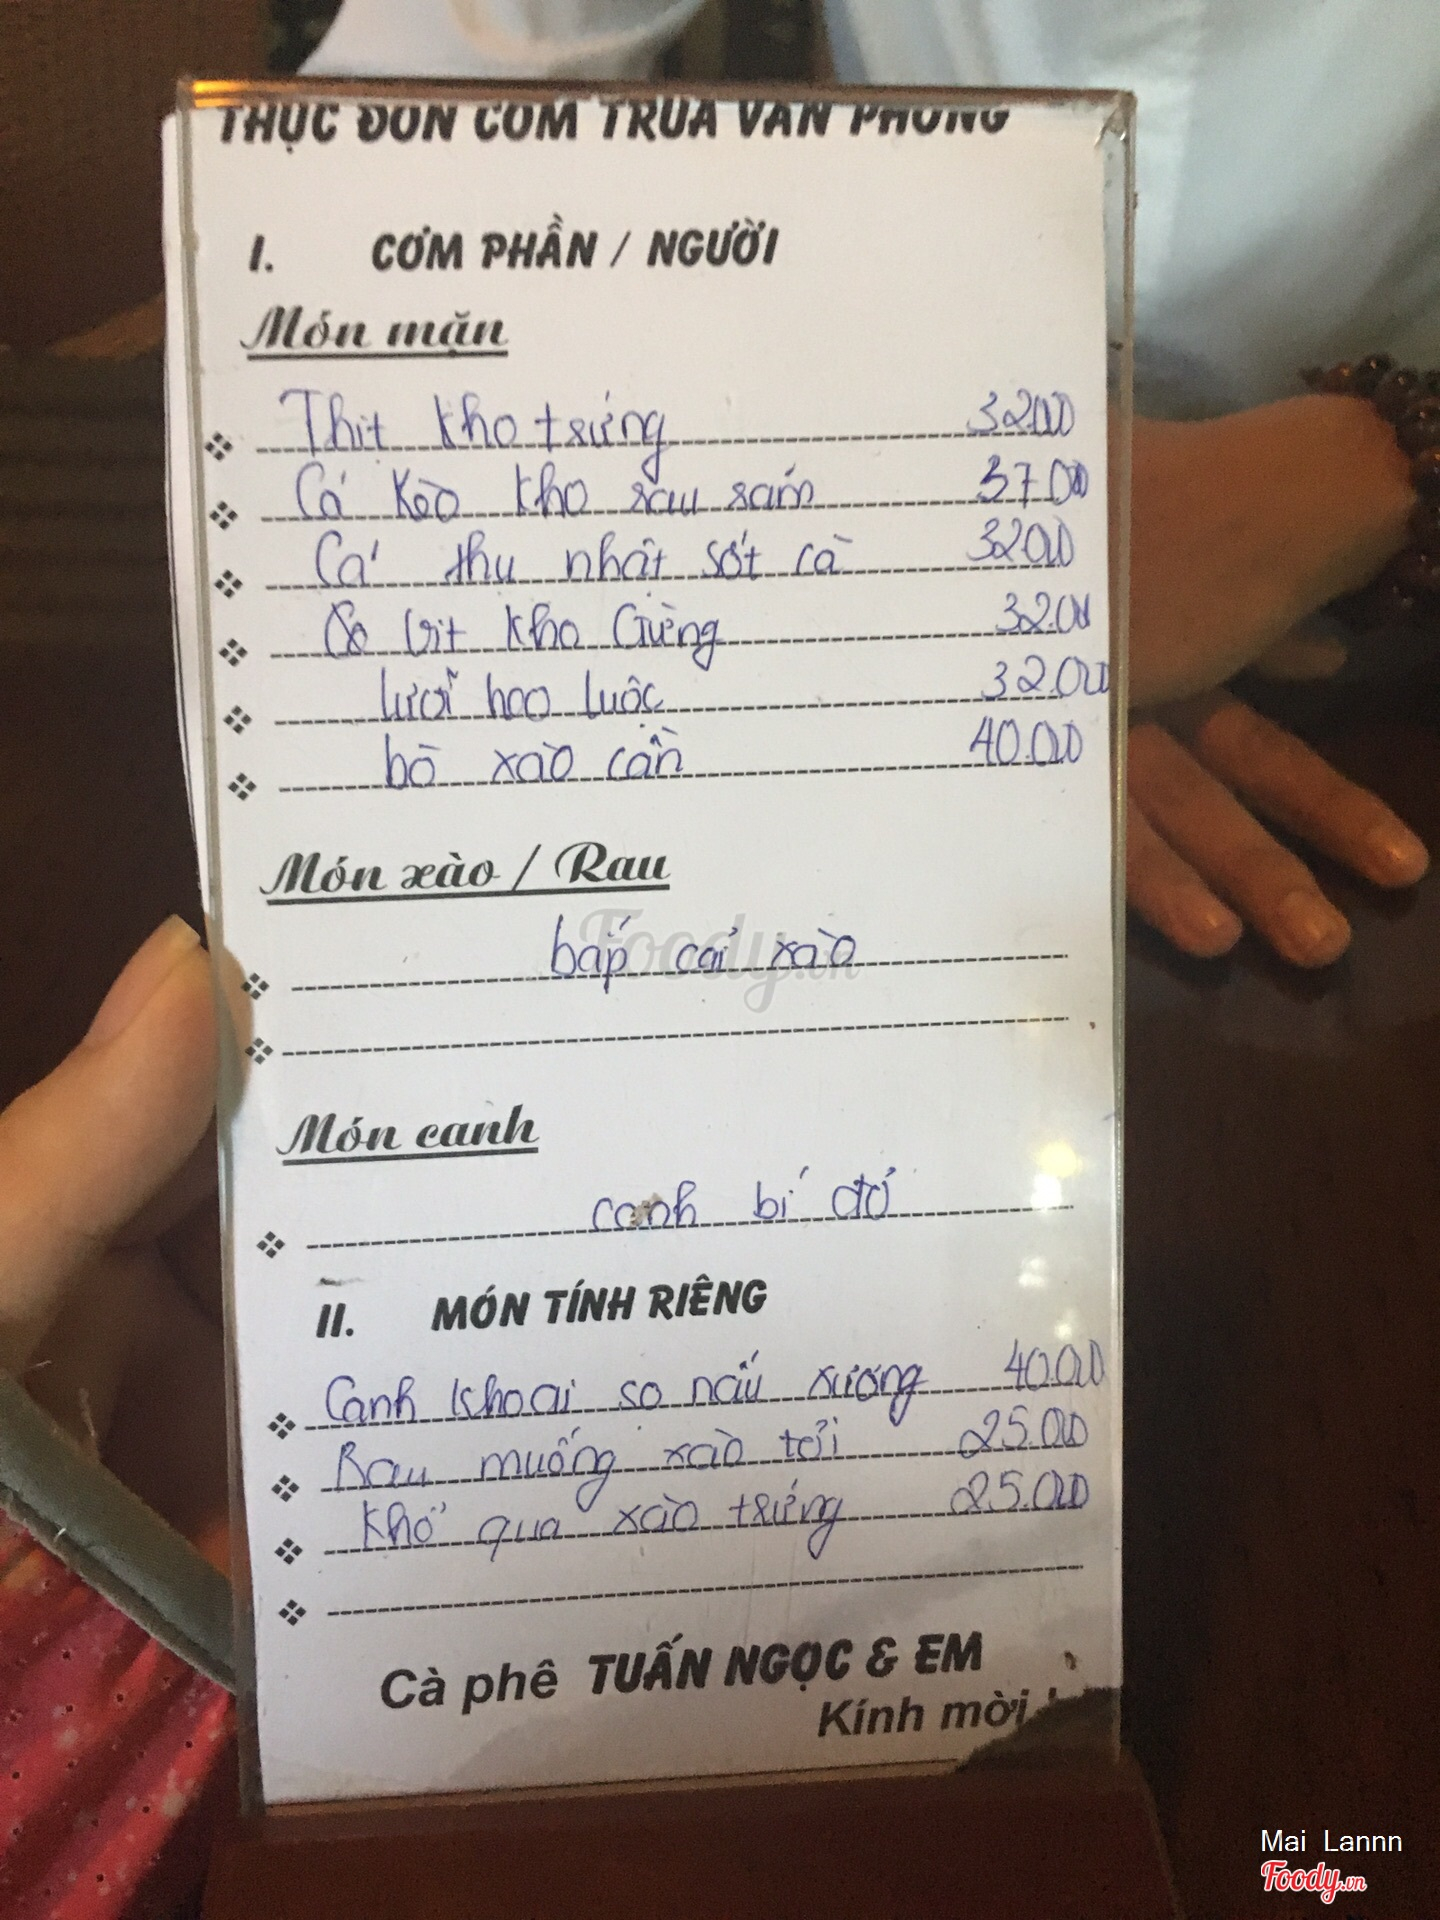 THỰC ĐƠN CƠM TRƯA VĂN PHÒNG
I. CƠM PHẦN / NGƯỜI
Món mặn
Thịt kho trứng 32.000
Cá Kèo kho rau răm 37.000
Cá thu nhật sốt cà 32.000
vịt kho Gừng 32.000
lưỡi heo luộc 32.000
bò xào cần 40.000
Món xào / Rau
bắp cải xào
Foody.vn
Món canh
canh bí đỏ
II. MÓN TÍNH RIÊNG
Canh khoai sọ nấu xương 40.000
Rau muống xào tỏi 25.000
Khổ qua xào trứng 25.000
Cà phê TUẤN NGỌC & EM
Kính mời
Mai Lannn
Foody.vn